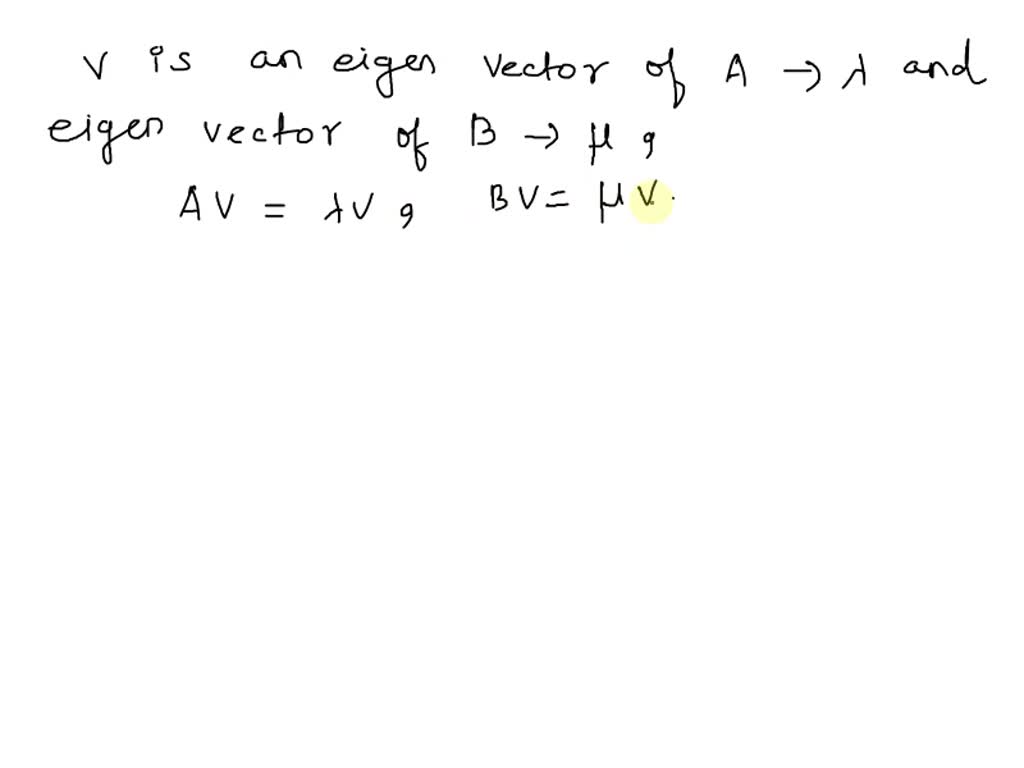 v is an eigen vector of A → λ and
eigen vector of B → μ ,
AV = λV , BV = μV.